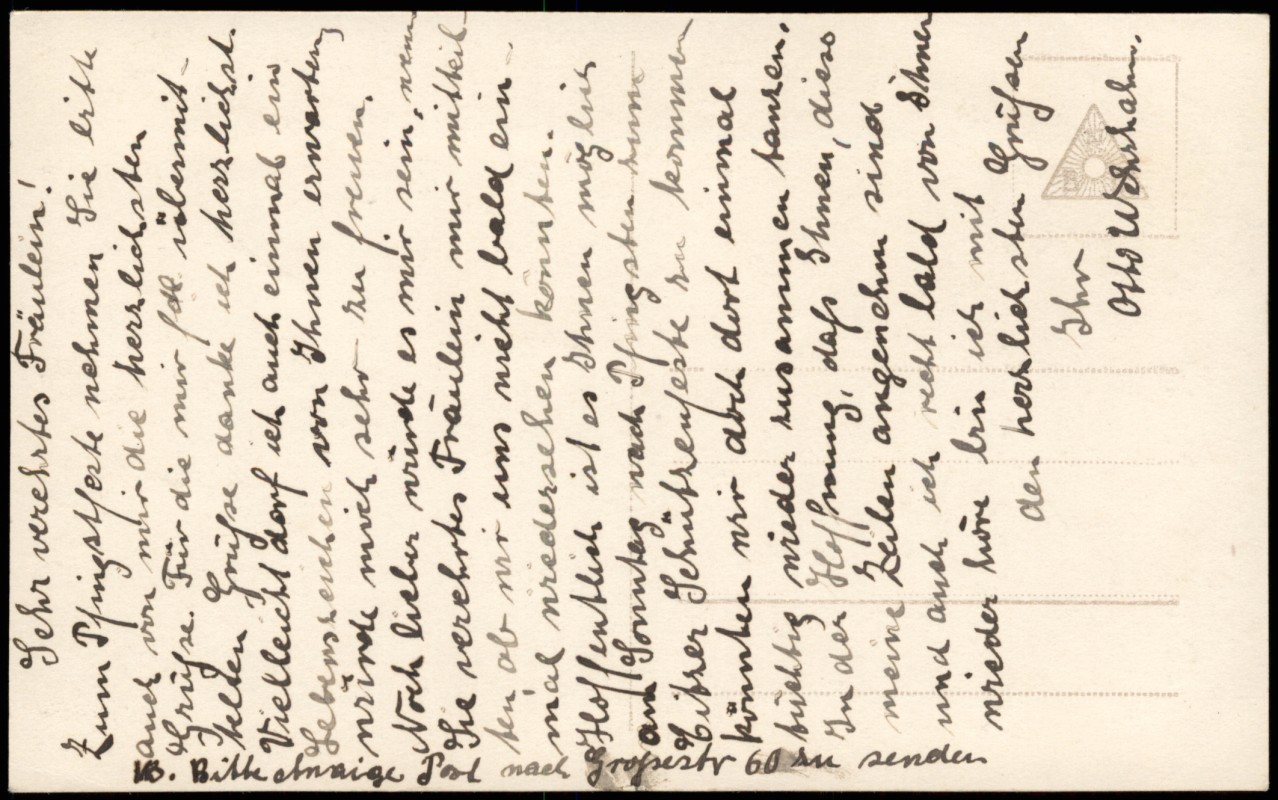 Sehr verehrtes Fräulein!
Zum Pfingstfeste nehmen Sie bitte
auch von mir die herzlichsten
Grüße. Für die mir übermit-
telten Grüße danke ich herzlichst.
Vielleicht darf ich auch einmal ein
Lebenszeichen von Ihnen erwarten,
würde mich sehr zu freuen.
Noch lieber würde es mir sein, wenn
Sie verehrtes Fräulein mir mitteil-
ten, ob wir uns nicht bald ein-
mal wiedersehen könnten.
Hoffentlich ist es Ihnen möglich
am Sonntag nach Pfingsten zum
Schützenfeste zu kommen
könnten wir doch dort einmal
tüchtig wieder zusammen tanzen.
In der Hoffnung, daß Ihnen, diese
meine Zeilen angenehm sind
und auch ich recht bald von Ihnen
wieder höre bin ich mit
den herzlichsten Grüßen
Ihr
Otto
NB. Bitte etwaige Post nach Großestr 60 zu senden